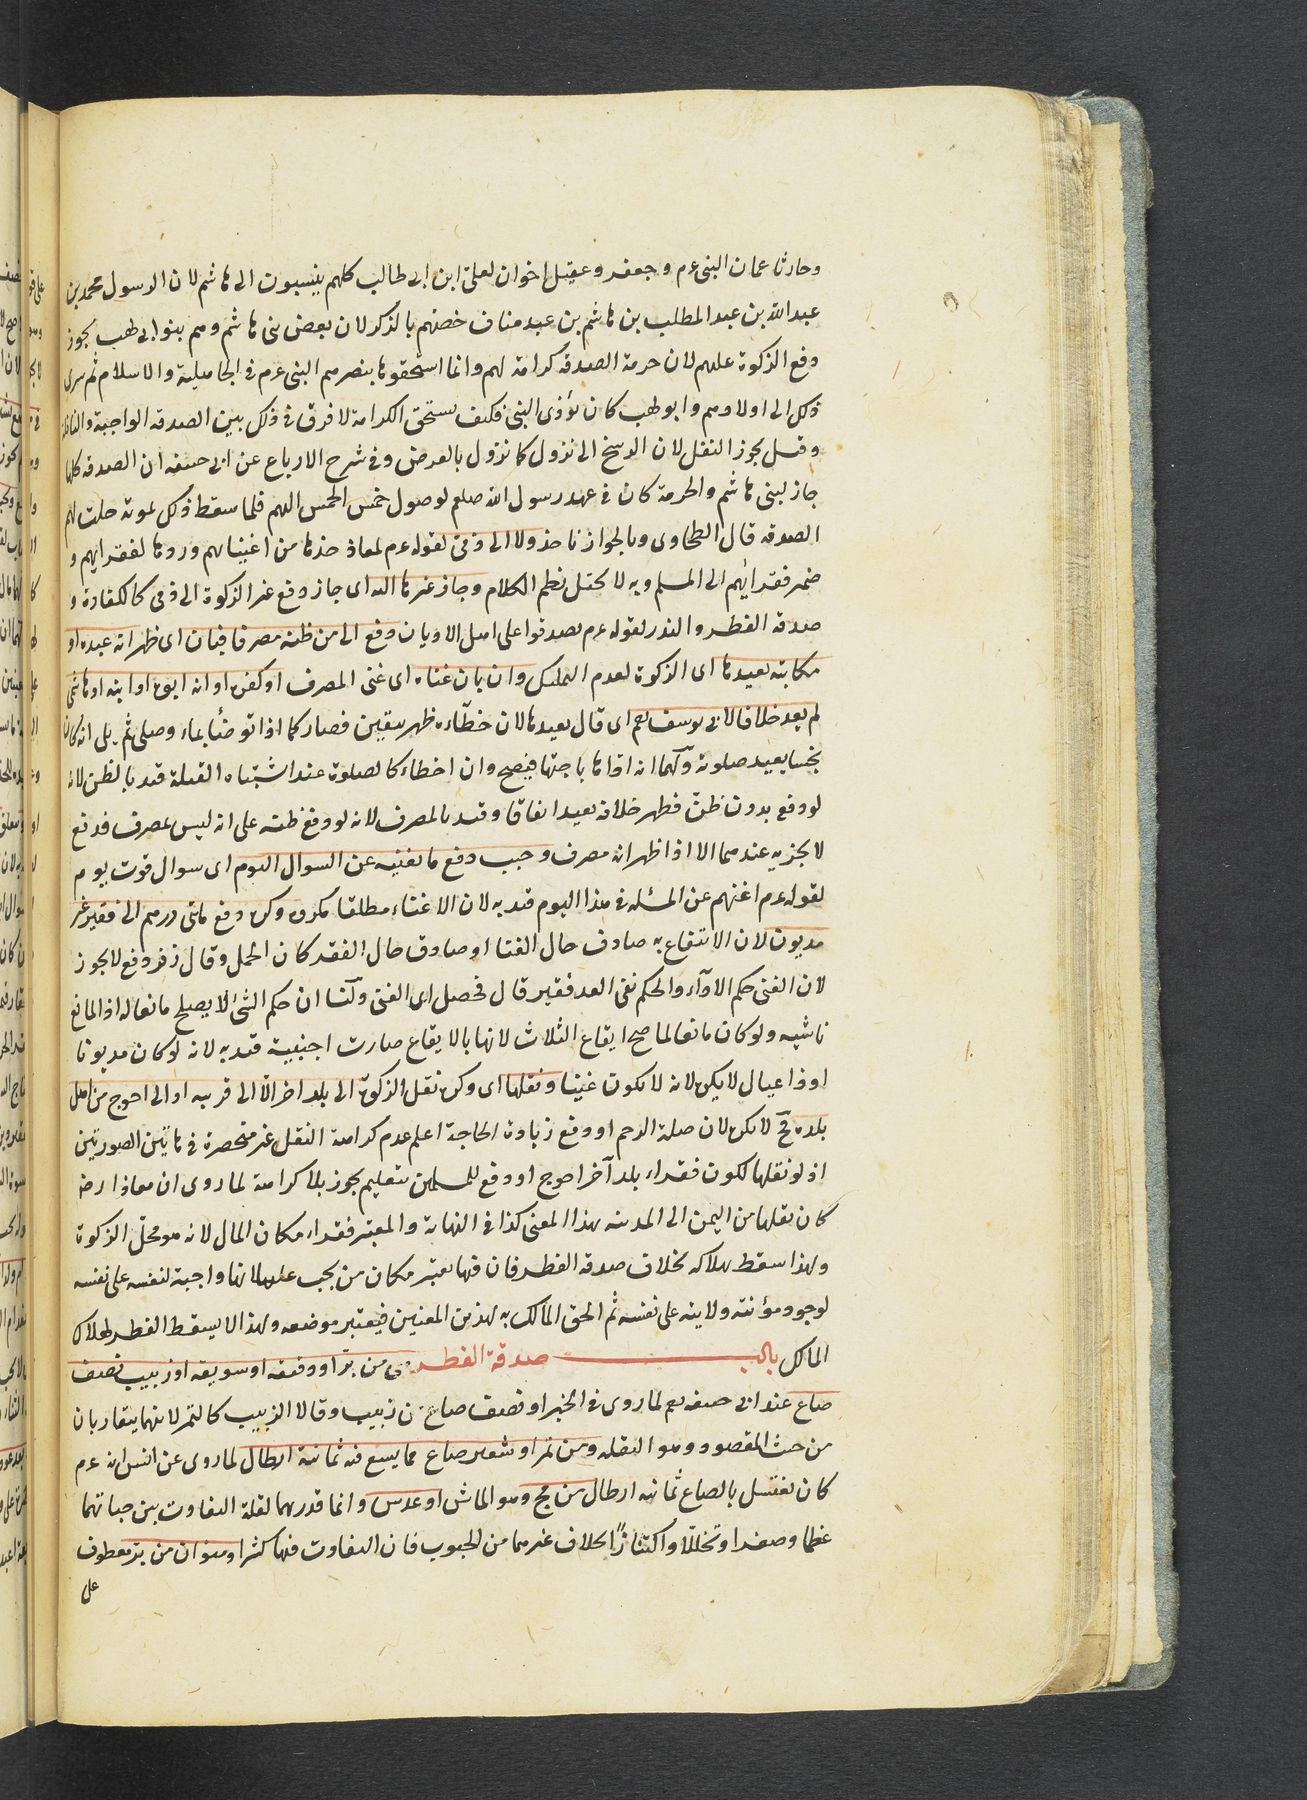 وحارث عمان النبى عم وجعفر وعقيل اخوان لعلى ابن ابى طالب كلهم ينسبون الى هاشم لان الرسول محمد بن
عبد الله بن عبد المطلب بن هاشم بن عبد مناف خصهم بالذكر لان بعض بنى هاشم وهم بنو ابى لهب يجوز
دفع الزكوة عليهم لان حرمة الصدقة كرامة لهم وانما استحقوها بنصرهم النبى عم فى الجاهلية والاسلام ثم سرى
ذلك الى اولادهم وابو لهب كان يؤذى النبى فكيف يستحق الكرامة لا فرق فى ذلك بين الصدقة الواجبة والنافلة
وقيل يجوز النفل لان الوسخ لا يزول كما يزول بالفرض وفى شرح الاثار عن ابى حنيفة ان الصدقة كلها
جاز لبنى هاشم والحرمة كان فى عهد رسول الله صلعم لوصول خمس الخمس اليهم فلما سقط ذلك بموته حلت لهم
الصدقة قال الطحاوى وبالجواز ناخذ ولا الى ذمى لقوله عم لمعاذ خذها من اغنيائهم وردها لفقرائهم و
ضمير فقرائهم الى المسلم وبه لا يختل نظم الكلام وجاز غيرها اليه اى جاز دفع غير الزكوة الى ذمى كالكفارة و
صدقة الفطر والنذر لقوله عم تصدقوا على اهل الاديان دفع الى من ظنه مصرفا فبان اى ظهر انه عبده او
مكاتبه يعيدها اى الزكوة لعدم التمليك وان بان غناه اى غنى المصرف او كفره او انه ابوه او ابنه او هاشمى
لم يعد خلافا لابى يوسف رحم اى قال يعيدها لان خطاءه ظهر بيقين فصار كما اذا توضأ بماء وصلى ثم بان انه كان
نجسا يعيد صلوته ولهما انه اداها باجتهاد فيصح وان اخطاء كالصلوة عند اشتباه القبلة قيد بالظن لانه
لو دفع بدون ظن فظهر خلافه يعيد اتفاقا وقيد بالمصرف لانه لو وقع ظنه على انه ليس بمصرف فدفع
لا يجزيه عندهما الا اذا ظهر انه مصرف وجب دفع ما يغنيه عن السوال اليوم اى سوال قوت يوم
لقوله عم اغنهم عن المسئلة فى هذا اليوم قيد به لان الاغناء مطلقا مكروه وكره دفع مائتى درهم الى فقير غير
مديون لان الانتفاع به صادف حال الغنا او صادف حال الفقر كان اكمل وقال زفر دفع لا يجوز
لان الغنى حكم الاداء والحكم نفى العد فقير قال فحصل اى الغنى ولنا ان حكم الشئ لا يصلح مانعا له اذ المانع
ما سبقه ولو كان مانعا لما صح ايقاع الثلاث لانها بالايقاع صارت اجنبية قيد به لانه لو كان مديونا
او ذا عيال لا يكره لانه لا يكون غنيا ونقلها اى وكره نقل الزكوة الى بلد اخر الا الى قريبه او الى احوج من اهل
بلده فح لا يكره لان صلة الرحم او دفع زيادة الحاجة اعلم عدم كراهة النقل غير منحصرة فى هاتين الصورتين
اذ لو نقلها لكون فقراء بلد آخر احوج او دفع للمسلمين بتعليم يجوز بلا كراهة لما روى ان معاذا رضه
كان ينقلها من اليمن الى المدينه بهذا المعنى كذا فى النهاية والمعتبر فقراء مكان المال لانه هو محل الزكوة
ولهذا سقط بهلاكه بخلاف صدقة الفطر فان فيها يعتبر مكان من يجب عليه لانها واجبة لنفسه على نفسه
لوجود مؤنته ولايته على نفسه ثم الحق المالك به لهذين المعنيين فيعتبر موضعه ولهذا لا يسقط الفطر لهلاك
المالك باب صدقة الفطر هى من بر او دقيقه او سويقه او زبيب نصف
صاع عند ابى حنيفة رحم لما روى فى الخبر او نصف صاع من زبيب وقالا الزبيب كالتمر لانهما يتقاربان
من حيث المقصود وهو التفكه ومن تمر او شعير صاع مما يسع فيه ثمانية ارطال لما روى عن انس انه عم
كان يغتسل بالصاع ثمانية ارطال من مج وهو الماش او عدس وانما قدر بهما لقلة التفاوت بين حباتهما
عظما وصغرا وتخللا واكتنازا بخلاف غيرهما من الحبوب فان التفاوت فيها كثير او منوان من بر معطوف
على